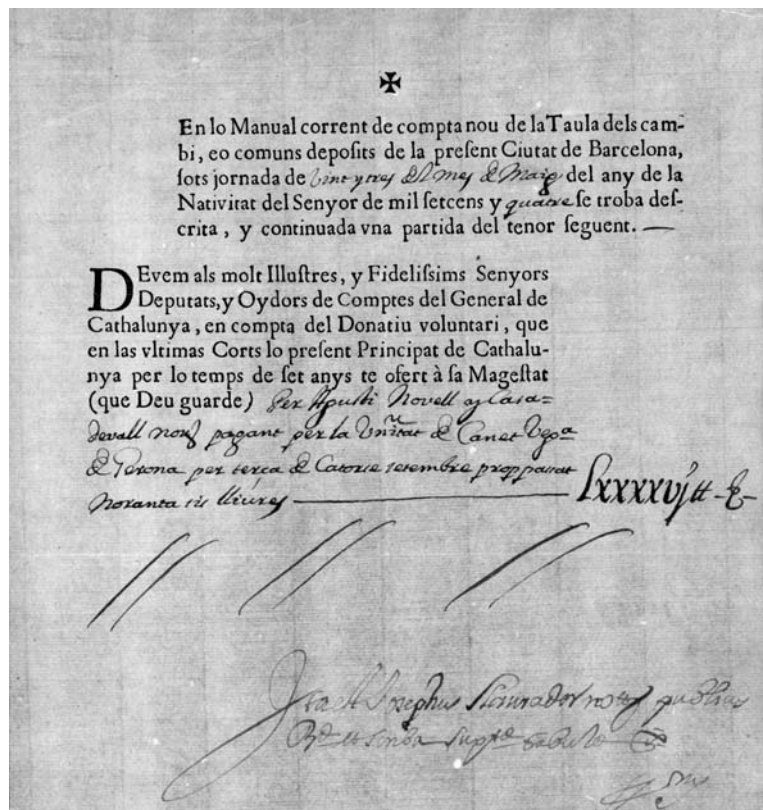 ✠
En lo Manual corrent de compta nou de la Taula dels cam-
bi, eo comuns deposits de la preſent Ciutat de Barcelona,
ſots jornada de vint y tres del mes de Maig del any de la
Nativitat del Senyor de mil ſetcens y quatre ſe troba deſ-
crita, y continuada vna partida del tenor ſeguent.
DEvem als molt Illuſtres, y Fideliſsims Senyors
Deputats, y Oydors de Comptes del General de
Cathalunya, en compta del Donatiu voluntari, que
en las vltimas Corts lo preſent Principat de Cathalu-
nya per lo temps de ſet anys te ofert à ſa Mageſtat
(que Deu guarde) Per Agusti Novell y Casa=
devall pagant per la de Canet
de Gerona per terça de Catorse setembre prop passat
Noranta sis lliures Lxxxxvj